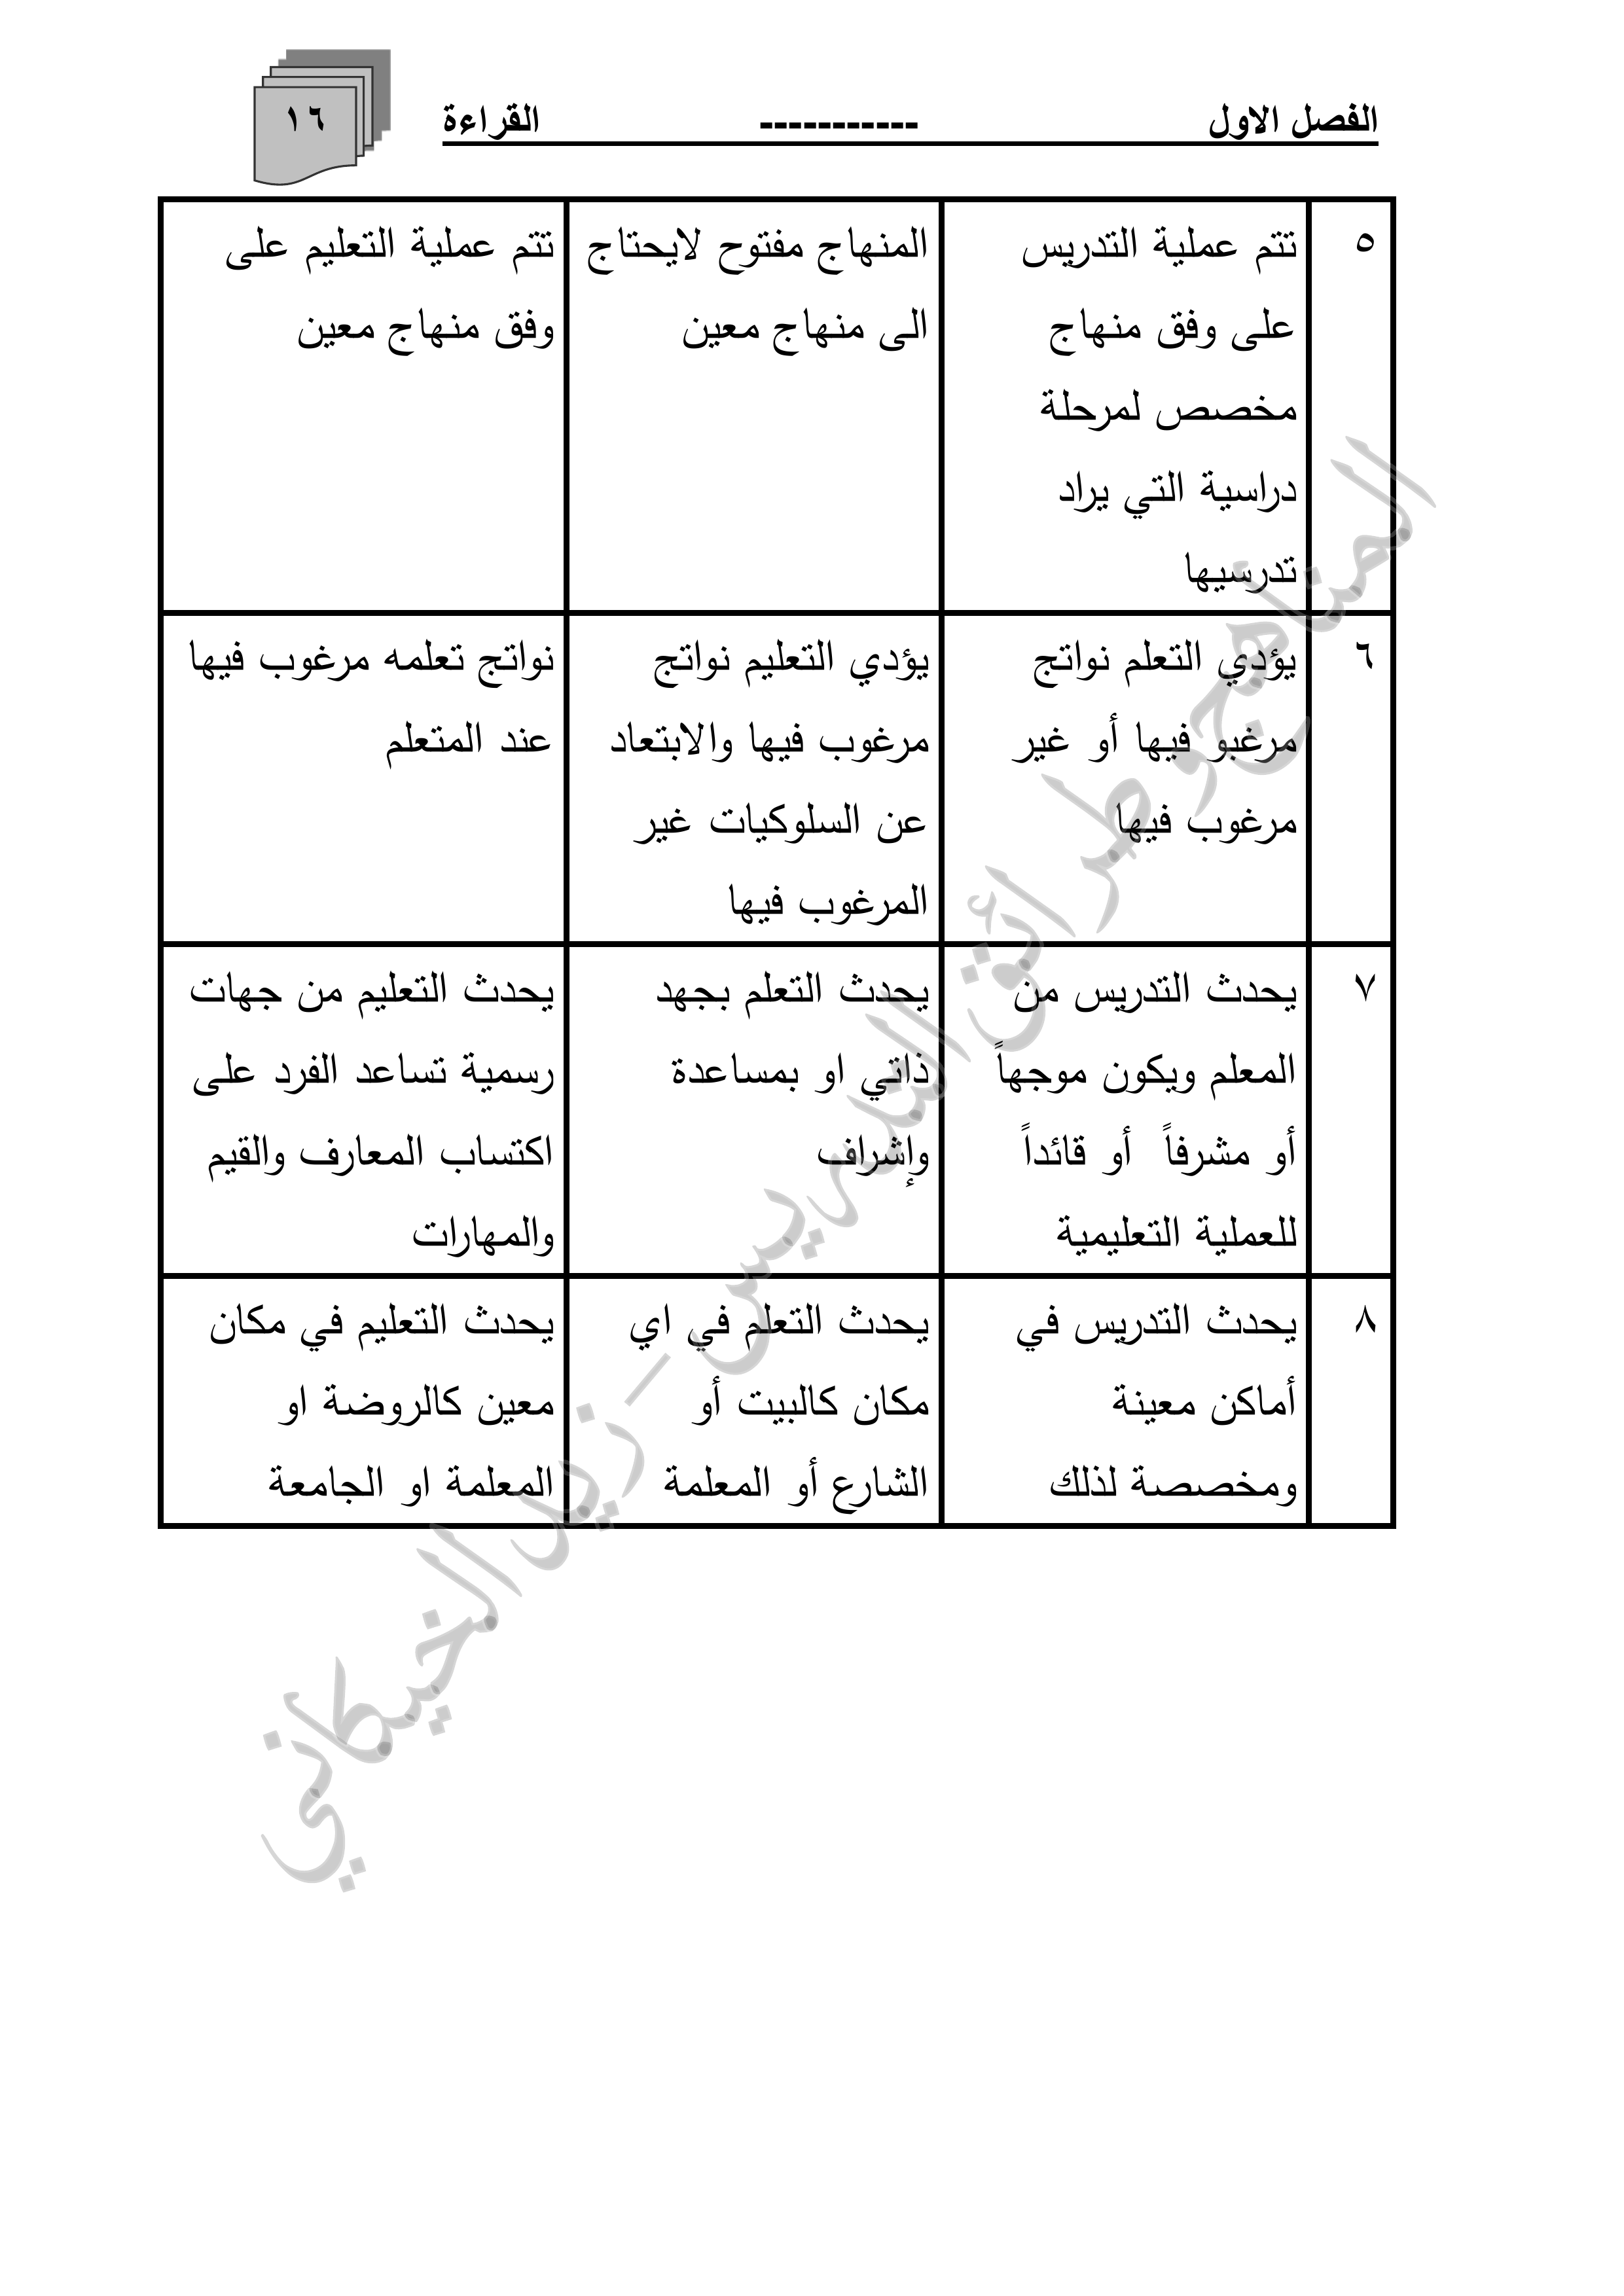 الفصل الاول ----------- القراءة
١٦
٥
تتم عملية التدريس
على وفق منهاج
مخصص لمرحلة
دراسية التي يراد
تدرسيها
المنهاج مفتوح لايحتاج
الى منهاج معين
تتم عملية التعليم على
وفق منهاج معين
٦
يؤدي التعلم نواتج
مرغبو فيها أو غير
مرغوب فيها
يؤدي التعليم نواتج
مرغوب فيها والابتعاد
عن السلوكيات غير
المرغوب فيها
نواتج تعلمه مرغوب فيها
عند المتعلم
٧
يحدث التدريس من
المعلم ويكون موجهاً
أو مشرفاً أو قائداً
للعملية التعليمية
يحدث التعلم بجهد
ذاتي او بمساعدة
وإشراف
يحدث التعليم من جهات
رسمية تساعد الفرد على
اكتساب المعارف والقيم
والمهارات
٨
يحدث التدريس في
أماكن معينة
ومخصصة لذلك
يحدث التعلم في اي
مكان كالبيت أو
الشارع أو المعلمة
يحدث التعليم في مكان
معين كالروضة او
المعلمة او الجامعة
المناهج وطرائق التدريس - نبيل الخيكاني